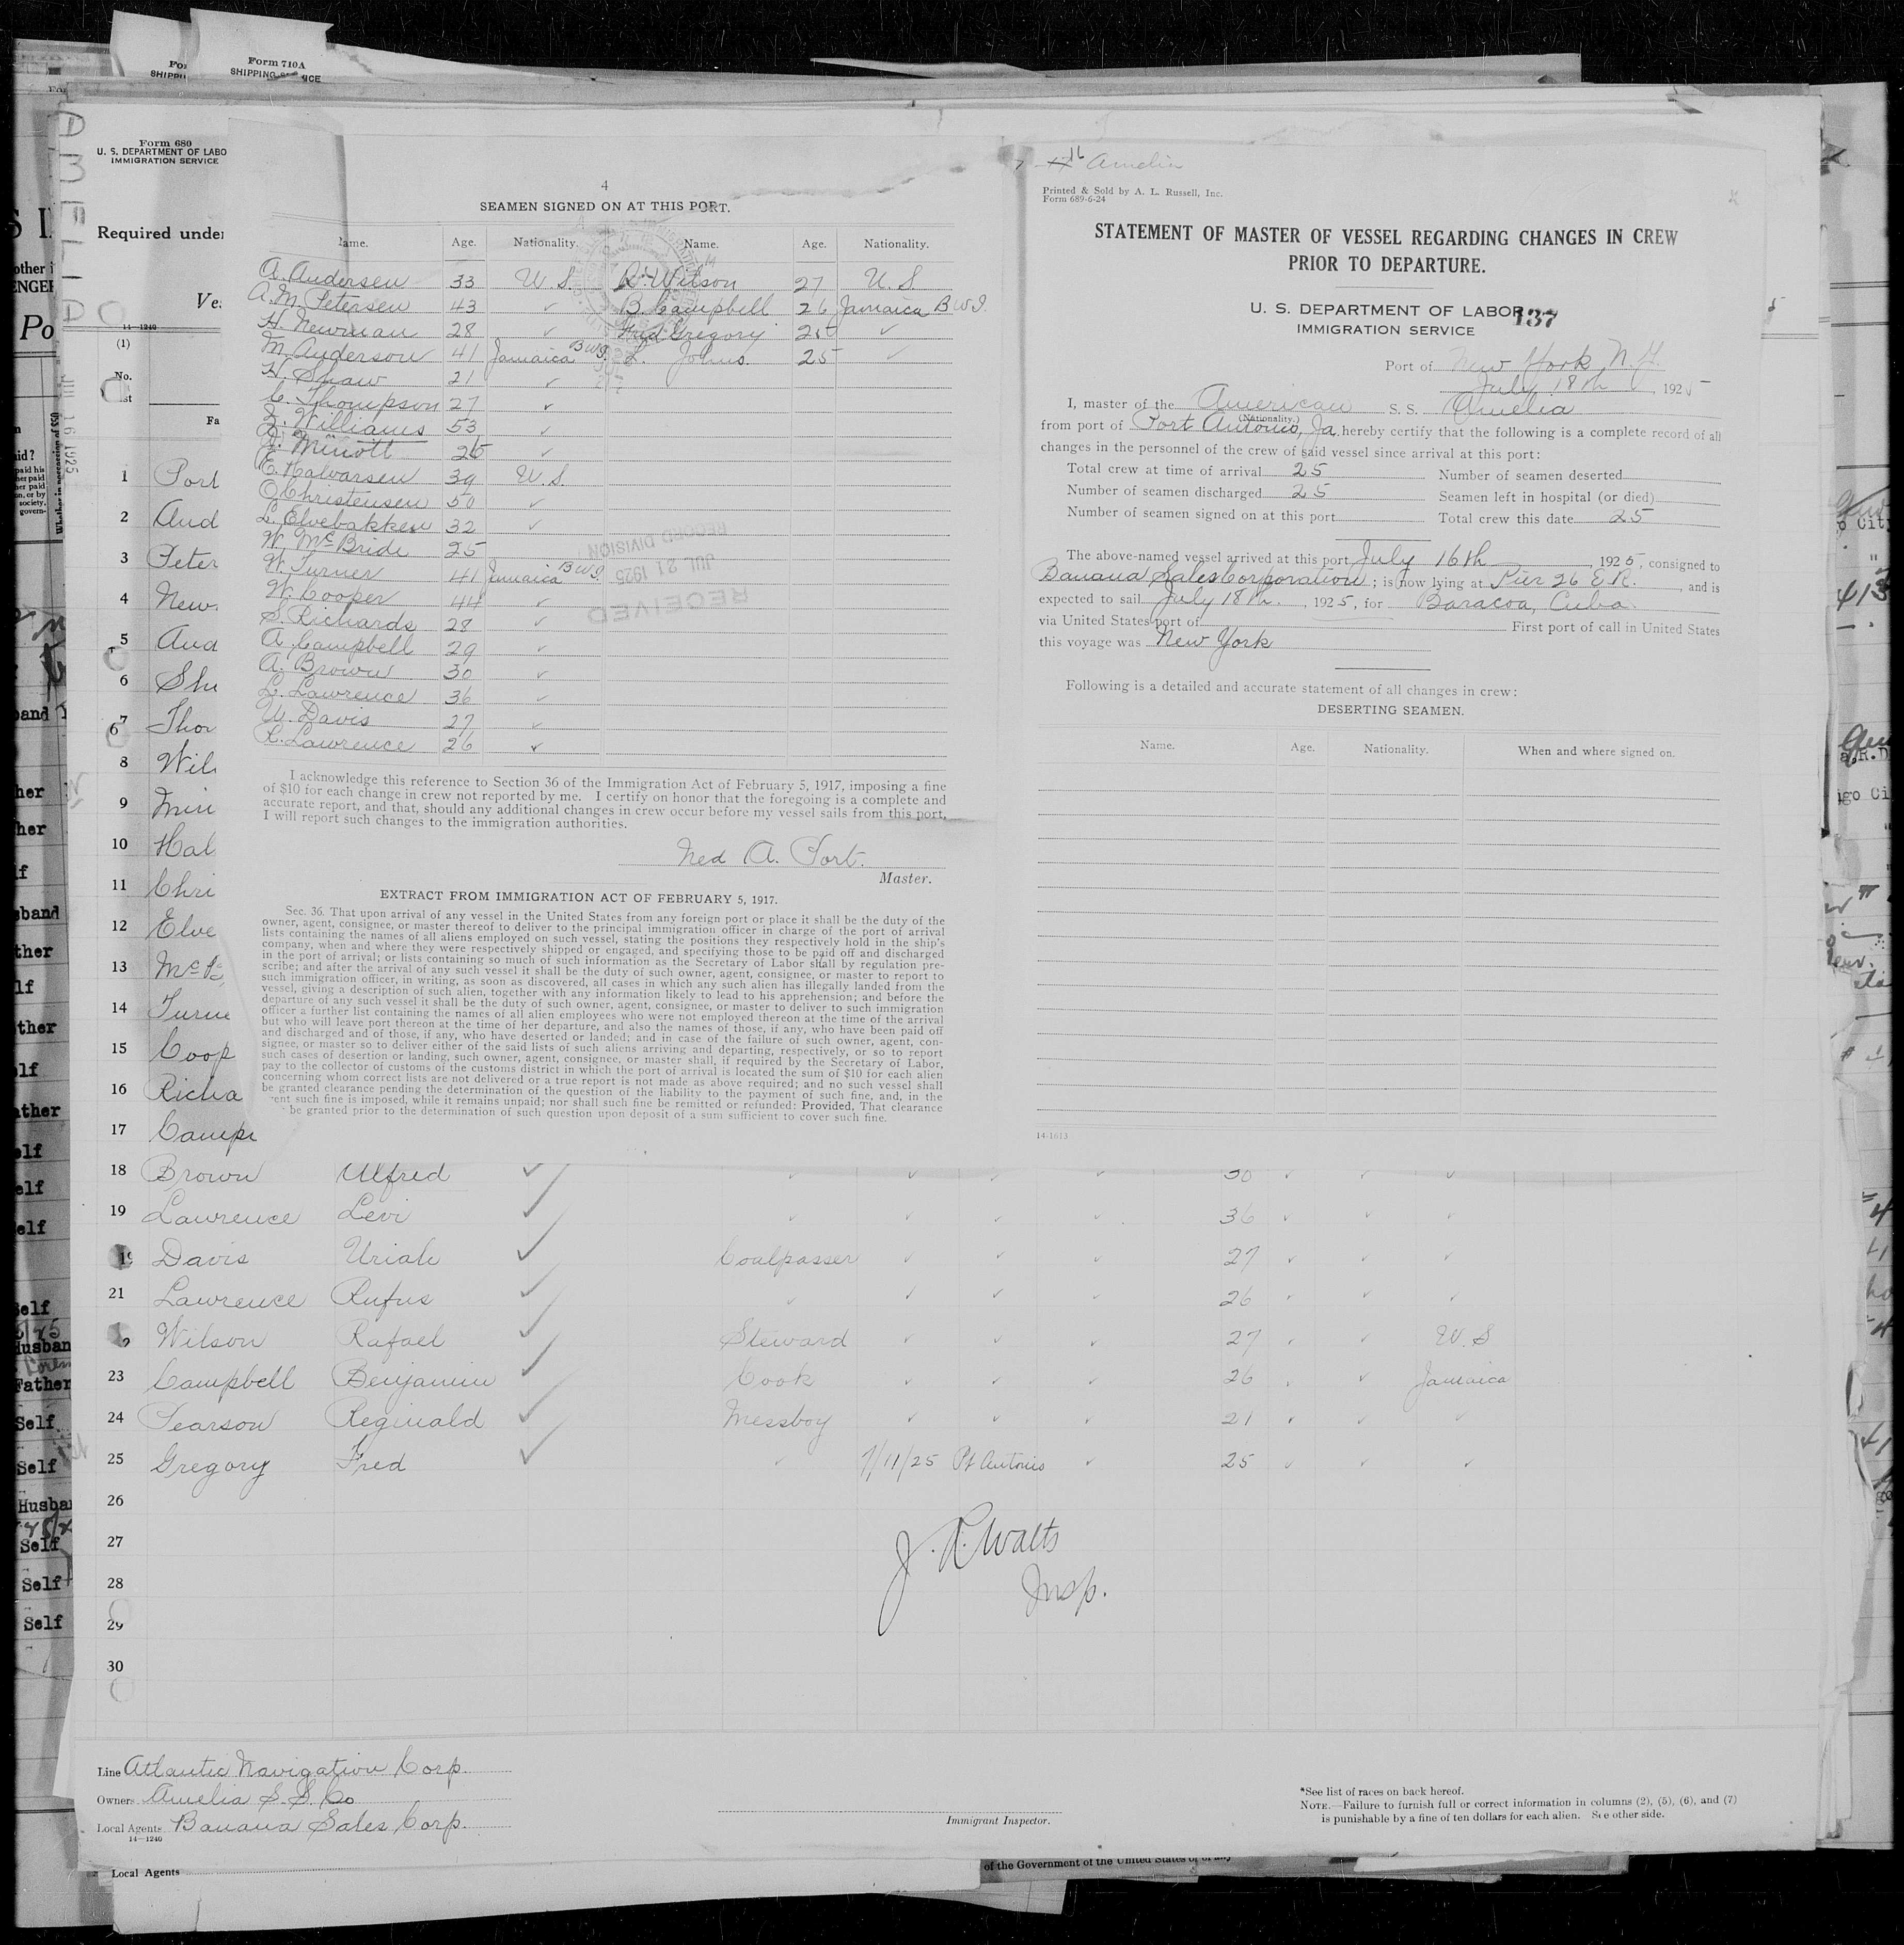 Form 710A
SHIPPING SERVICE
AMELIA
JUL 16 1925
Form 680
U. S. DEPARTMENT OF LABO
IMMIGRATION SERVICE
Required under
Ves
14—1240
(1)
No.
Fa
4
SEAMEN SIGNED ON AT THIS PORT.
Name. Age. Nationality. Name. Age. Nationality.
A. Andersen 33 U. S. R. Wilson 27 U. S.
A. M. Petersen 43 ✓ B. Campbell 26 Jamaica B W I.
H. Newman 28 ✓ Fred Gregory 25 ✓
M. Anderson 41 Jamaica B W I. L. Johns. 25 ✓
H. Shaw 21 ✓
C. Thompson 27 ✓
Z. Williams 53 ✓
Minott 26 ✓
E. Halvarsen 39 U. S.
O. Christensen 50 ✓
L. Elvebakken 32 ✓
W. McBride 25
W. Turner 41 Jamaica B W I.
W. Cooper 44 ✓
S. Richards 28 ✓
A. Campbell 29 ✓
A. Brown 30 ✓
L. Lawrence 36 ✓
U. Davis 27 ✓
R. Lawrence 26 ✓
RECEIVED
JUL 21 1925
RECORD DIVISION
I acknowledge this reference to Section 36 of the Immigration Act of February 5, 1917, imposing a fine
of $10 for each change in crew not reported by me. I certify on honor that the foregoing is a complete and
accurate report, and that, should any additional changes in crew occur before my vessel sails from this port,
I will report such changes to the immigration authorities.
Ned A. Port.
Master.
EXTRACT FROM IMMIGRATION ACT OF FEBRUARY 5, 1917.
Sec. 36. That upon arrival of any vessel in the United States from any foreign port or place it shall be the duty of the
owner, agent, consignee, or master thereof to deliver to the principal immigration officer in charge of the port of arrival
lists containing the names of all aliens employed on such vessel, stating the positions they respectively hold in the ship's
company, when and where they were respectively shipped or engaged, and specifying those to be paid off and discharged
in the port of arrival; or lists containing so much of such information as the Secretary of Labor shall by regulation pre-
scribe; and after the arrival of any such vessel it shall be the duty of such owner, agent, consignee, or master to report to
such immigration officer, in writing, as soon as discovered, all cases in which any such alien has illegally landed from the
vessel, giving a description of such alien, together with any information likely to lead to his apprehension; and before the
departure of any such vessel it shall be the duty of such owner, agent, consignee, or master to deliver to such immigration
officer a further list containing the names of all alien employees who were not employed thereon at the time of the arrival
but who will leave port thereon at the time of her departure, and also the names of those, if any, who have been paid off
and discharged and of those, if any, who have deserted or landed; and in case of the failure of such owner, agent, con-
signee, or master so to deliver either of the said lists of such aliens arriving and departing, respectively, or so to report
such cases of desertion or landing, such owner, agent, consignee, or master shall, if required by the Secretary of Labor,
pay to the collector of customs of the customs district in which the port of arrival is located the sum of $10 for each alien
concerning whom correct lists are not delivered or a true report is not made as above required; and no such vessel shall
be granted clearance pending the determination of the question of the liability to the payment of such fine, and, in the
vent such fine is imposed, while it remains unpaid; nor shall such fine be remitted or refunded: Provided, That clearance
be granted prior to the determination of such question upon deposit of a sum sufficient to cover such fine.
16 Amelia
Printed & Sold by A. L. Russell, Inc.
Form 689-6-24
STATEMENT OF MASTER OF VESSEL REGARDING CHANGES IN CREW
PRIOR TO DEPARTURE.
U. S. DEPARTMENT OF LABOR
137
IMMIGRATION SERVICE
Port of New York, N. Y.
July 18th, 1925
I, master of the American S. S. Amelia
(Nationality.)
from port of Port Antonio, Ja. hereby certify that the following is a complete record of all
changes in the personnel of the crew of said vessel since arrival at this port:
Total crew at time of arrival 25 Number of seamen deserted
Number of seamen discharged 25 Seamen left in hospital (or died)
Number of seamen signed on at this port Total crew this date 25
The above-named vessel arrived at this port July 16th, 1925, consigned to
Banana Sales Corporation; is now lying at Pier 26 E. R., and is
expected to sail July 18th., 1925, for Baracoa, Cuba.
via United States port of First port of call in United States
this voyage was New York
Following is a detailed and accurate statement of all changes in crew:
DESERTING SEAMEN.
Name. Age. Nationality. When and where signed on.
14-1613
1 Port
2 And
3 Peter
4 New
5 And
6 Sha
7 Thom
8 Wil
9 Min
10 Hal
11 Chri
12 Elve
13 McB
14 Turne
15 Coop
16 Richa
17 Camp
18 Brown Alfred ✓ ✓ ✓ ✓ ✓ 30 ✓ ✓ ✓
19 Lawrence Levi ✓ ✓ ✓ ✓ ✓ 36 ✓ ✓ ✓
Davis Uriah ✓ Coalpasser ✓ ✓ ✓ 27 ✓ ✓ ✓
21 Lawrence Rufus ✓ ✓ ✓ ✓ ✓ 26 ✓ ✓ ✓
Wilson Rafael ✓ Steward ✓ ✓ ✓ 27 ✓ ✓ U. S
23 Campbell Benjamin ✓ Cook ✓ ✓ ✓ 26 ✓ ✓ Jamaica
24 Pearson Reginald ✓ Messboy ✓ ✓ ✓ 21 ✓ ✓ ✓
25 Gregory Fred ✓ ✓ 7/11/25 Pt Antonio ✓ 25 ✓ ✓ ✓
26
27
28
29
30
J. R. Watts
Insp.
Line Atlantic Navigation Corp.
Owners Amelia S. S. Co
Local Agents Banana Sales Corp.
14—1240
Immigrant Inspector.
*See list of races on back hereof.
NOTE.—Failure to furnish full or correct information in columns (2), (5), (6), and (7)
is punishable by a fine of ten dollars for each alien. See other side.
Local Agents
of the Government of the United States or of any